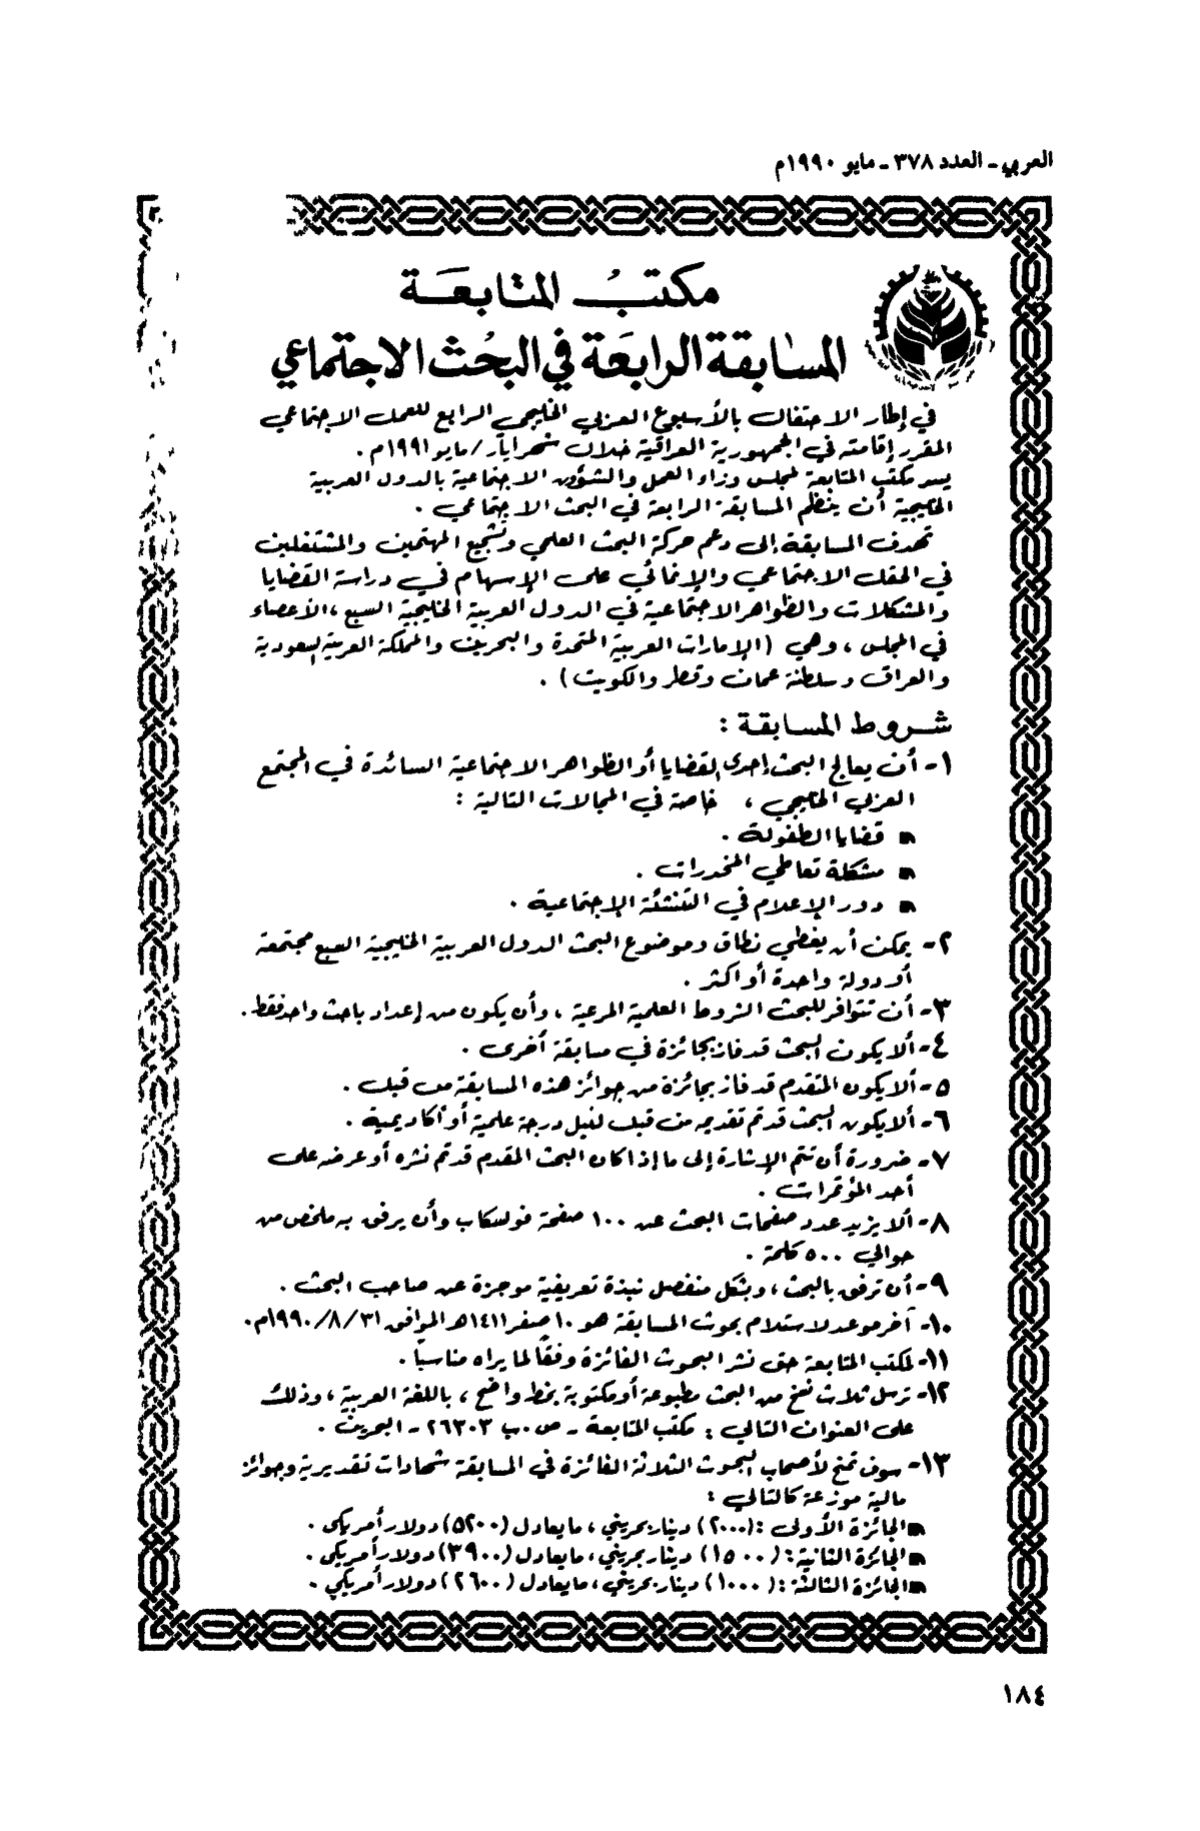 العربي - العدد ٣٧٨ - مايو ١٩٩٠م
مكتب المتابعة
المسابقة الرابعة في البحث الاجتماعي
في إطار الاحتفال بالأسبوع العربي الخليجي الرابع للعمل الاجتماعي
المقرر إقامته في الجمهورية العراقية خلال شهر أيار/مايو ١٩٩١م .
يسر مكتب المتابعة لمجلس وزراء العمل والشؤون الاجتماعية بالدول العربية
الخليجية أن ينظم المسابقة الرابعة في البحث الاجتماعي .
تهدف المسابقة إلى دعم حركة البحث العلمي وتشجيع المهتمين والمشتغلين
في الحقل الاجتماعي والإنمائي على الإسهام في دراسة القضايا
والمشكلات والظواهر الاجتماعية في الدول العربية الخليجية السبع ، الأعضاء
في المجلس ، وهي (الإمارات العربية المتحدة والبحرين والمملكة العربية السعودية
والعراق وسلطنة عمان وقطر والكويت) .
شروط المسابقة :
١- أن يعالج البحث إحدى القضايا أو الظواهر الاجتماعية السائدة في المجتمع
العربي الخليجي ، خاصة في المجالات التالية :
قضايا الطفولة .
مشكلة تعاطي المخدرات .
دور الإعلام في التنشئة الإجتماعية .
٢- يمكن أن يغطي نطاق وموضوع البحث الدول العربية الخليجية السبع مجتمعة
أو دولة واحدة أو أكثر .
٣- أن تتوافر للبحث الشروط العلمية المرعية ، وأن يكون من إعداد باحث واحد فقط .
٤- ألا يكون البحث قد فاز بجائزة في مسابقة أخرى .
٥- ألا يكون المتقدم قد فاز بجائزة من جوائز هذه المسابقة من قبل .
٦- ألا يكون البحث قد تم تقديمه من قبل لنيل درجة علمية أو أكاديمية .
٧- ضرورة أن تتم الإشارة إلى ما إذا كان البحث المقدم قد تم نشره أو عرضه على
أحد المؤتمرات .
٨- ألا يزيد عدد صفحات البحث عن ١٠٠ صفحة فولسكاب وأن يرفق به ملخص من
حوالي ٥٠٠ كلمة .
٩- أن ترفق بالبحث ، وبشكل منفصل نبذة تعريفية موجزة عن صاحب البحث .
١٠- آخر موعد لاستلام بحوث المسابقة هو ١٠ صفر ١٤١١هـ الموافق ٣١/٨/١٩٩٠م .
١١- لمكتب المتابعة حق نشر البحوث الفائزة وفقاً لما يراه مناسباً .
١٢- ترسل ثلاث نسخ من البحث مطبوعة أو مكتوبة بخط واضح ، باللغة العربية ، وذلك
على العنوان التالي : مكتب المتابعة - ص.ب ٢٦٣٠٣ - البحرين .
١٣- سوف تمنح لأصحاب البحوث الثلاثة الفائزة في المسابقة شهادات تقديرية وجوائز
مالية موزعة كالتالي :
الجائزة الأولى : (٢٠٠٠) دينار بحريني ، ما يعادل (٥٢٠٠) دولار أمريكي .
الجائزة الثانية : (١٥٠٠) دينار بحريني ، ما يعادل (٣٩٠٠) دولار أمريكي .
الجائزة الثالثة : (١٠٠٠) دينار بحريني ، ما يعادل (٢٦٠٠) دولار أمريكي .
١٨٤